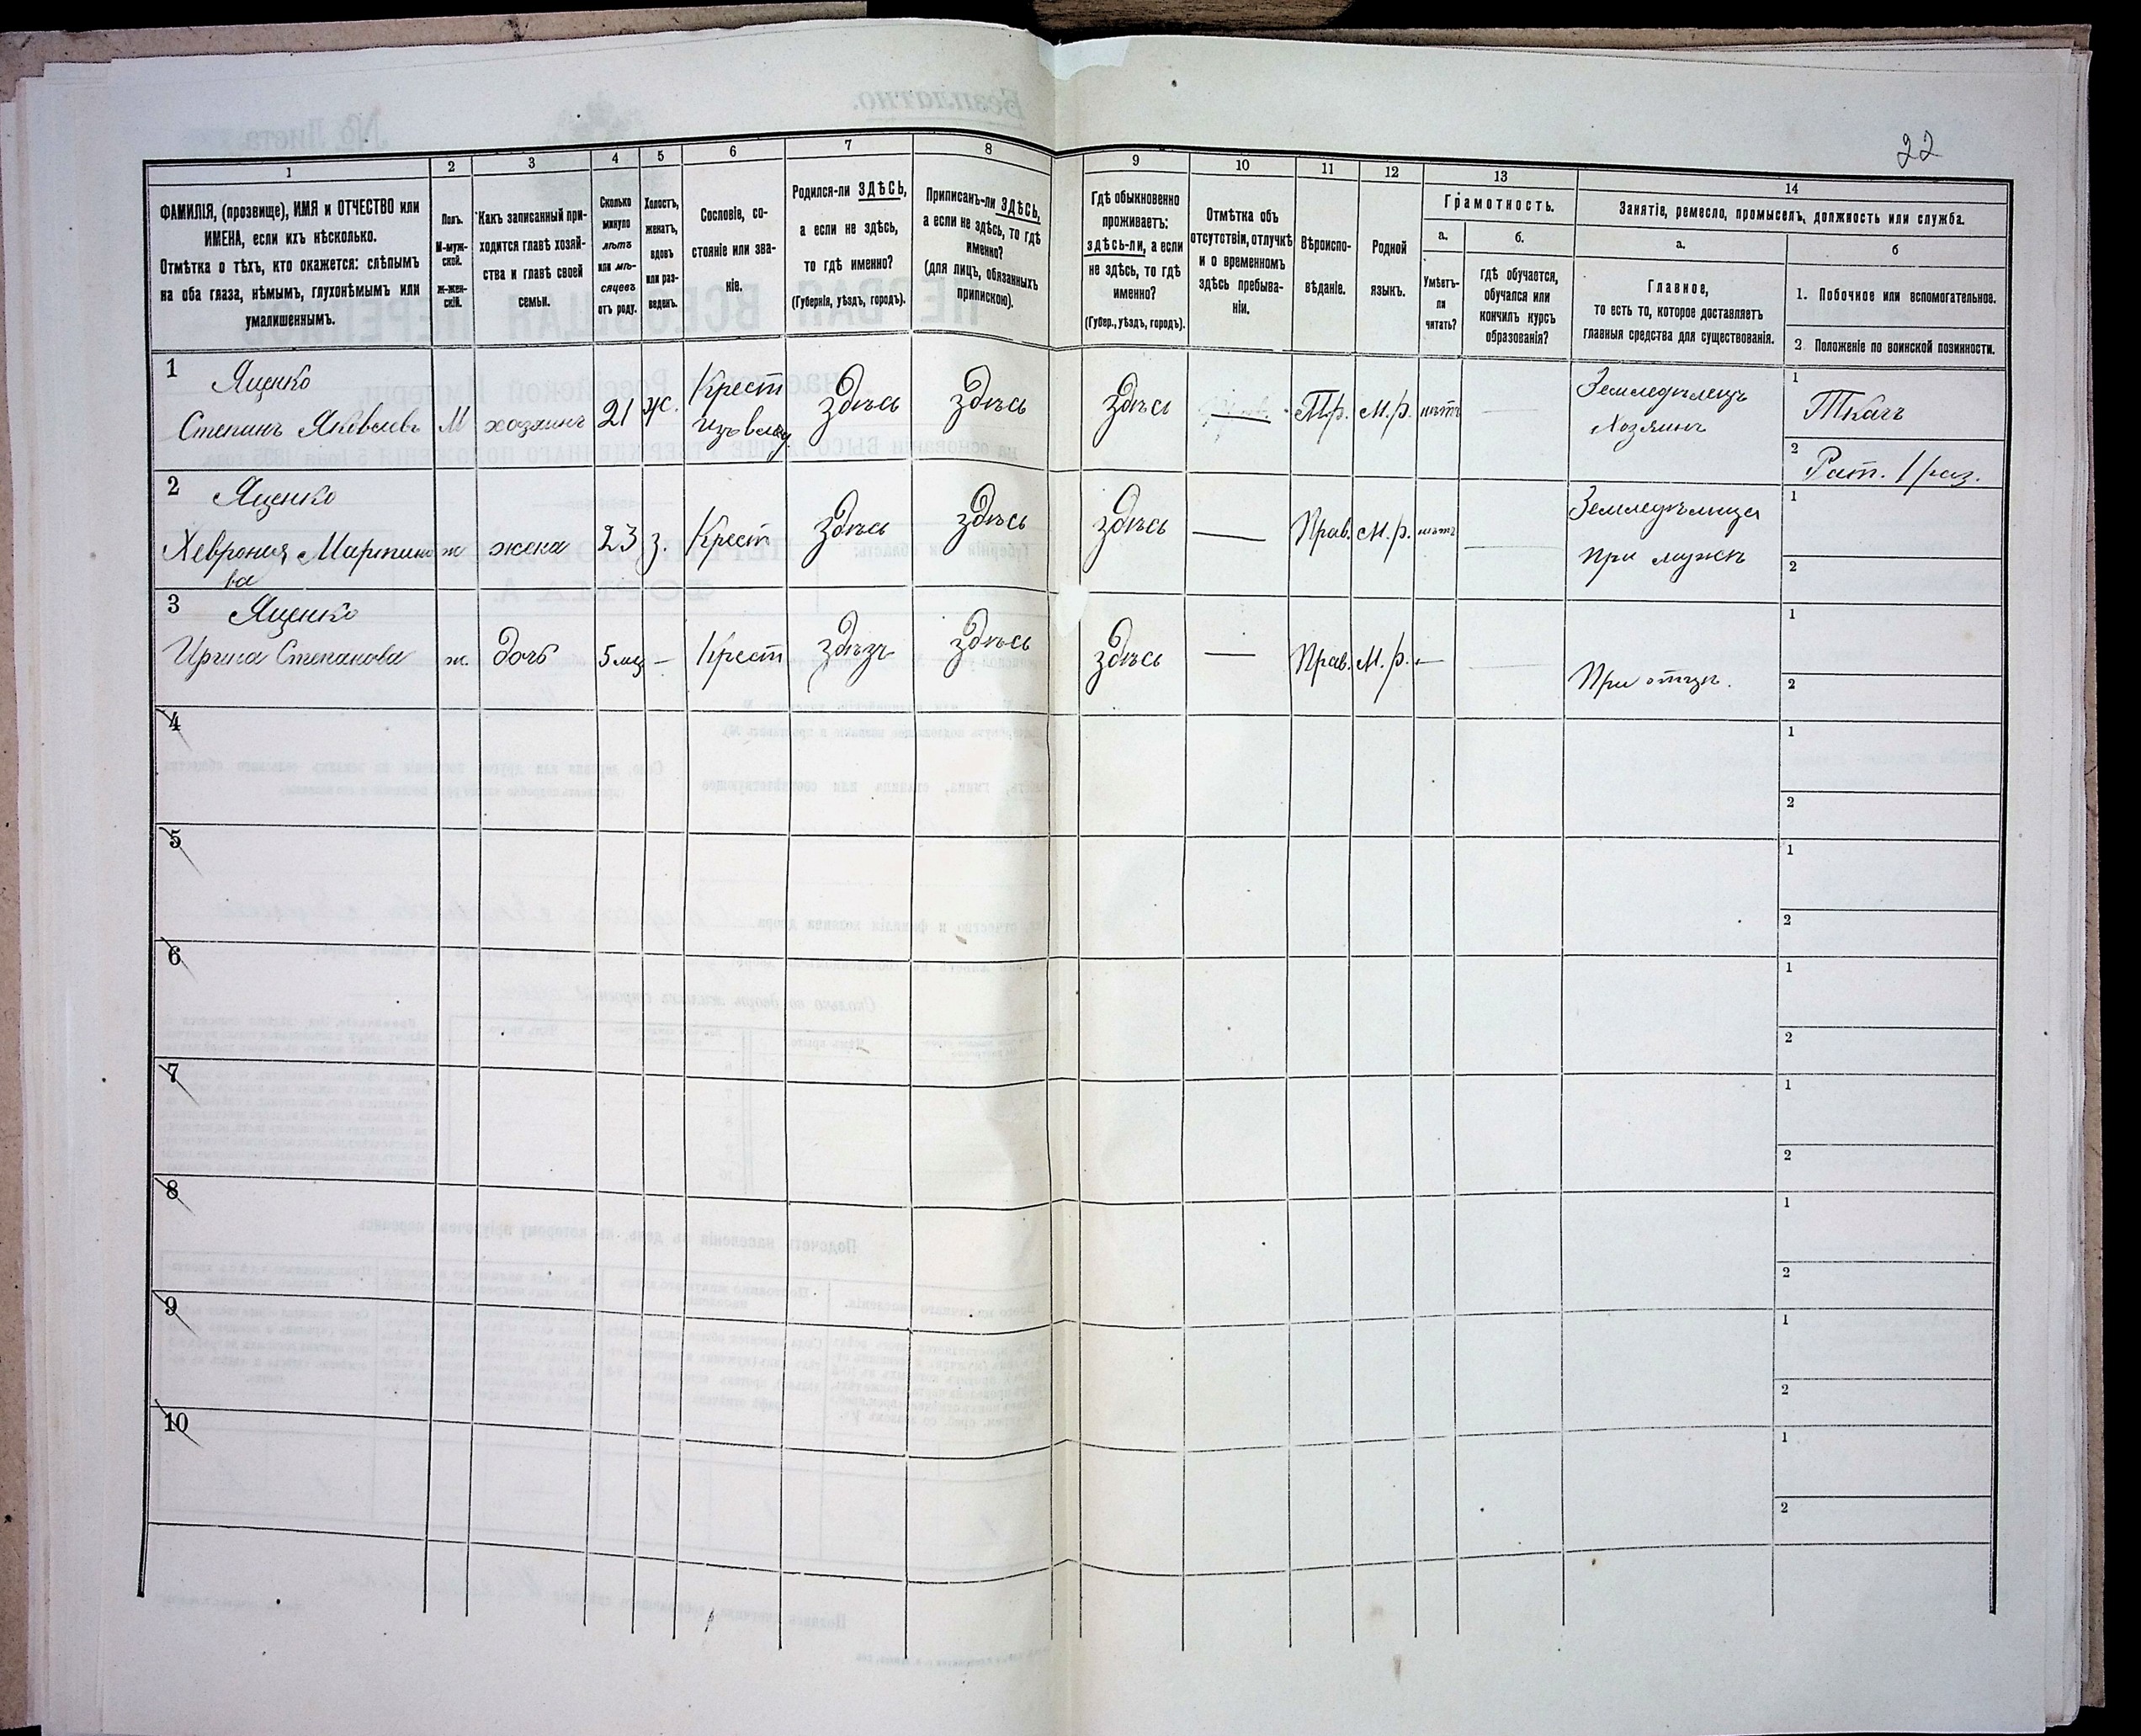 22
1
2
3
4
5
6
7
8
9
10
11
12
13
14
ФАМИЛІЯ, (прозвище), ИМЯ и ОТЧЕСТВО или
ИМЕНА, если ихъ нѣсколько.
Отмѣтка о тѣхъ, кто окажется: слѣпымъ
на оба глаза, нѣмымъ, глухонѣмымъ или
умалишеннымъ.
Полъ.
М-муж-
ской.
Ж-жен-
скій.
Какъ записанный при-
ходится главѣ хозяй-
ства и главѣ своей
семьи.
Сколько
минуло
лѣтъ
или мѣ-
сяцевъ
отъ роду.
Холостъ,
женатъ,
вдовъ
или раз-
веденъ.
Сословіе, со-
стояніе или зва-
ніе.
Родился-ли ЗДѢСЬ,
а если не здѣсь,
то гдѣ именно?
(Губернія, уѣздъ, городъ).
Приписанъ-ли ЗДѢСЬ,
а если не здѣсь, то гдѣ
именно?
(для лицъ, обязанныхъ
припискою).
Гдѣ обыкновенно
проживаетъ:
здѣсь-ли, а если
не здѣсь, то гдѣ
именно?
(Губер., уѣздъ, городъ).
Отмѣтка объ
отсутствіи, отлучкѣ
и о временномъ
здѣсь пребыва-
ніи.
Вѣроиспо-
вѣданіе.
Родной
языкъ.
Грамотность.
а.
б.
Умѣетъ-
ли
читать?
гдѣ обучается,
обучался или
кончилъ курсъ
образованія?
Занятіе, ремесло, промыселъ, должность или служба.
а.
б
Главное,
то есть то, которое доставляетъ
главныя средства для существованія.
1. Побочное или вспомогательное.
2 Положеніе по воинской повинности.
1
Яценко
Степанъ Яковлевъ
М
хозяинъ
21
ж.
Крест
изъ влад.
здѣсь
здѣсь
здѣсь
—
Пр.
М.р.
нѣтъ
—
Земледѣлецъ
Хозяинъ
1
Ткачъ
2
Рат. 1 раз.
2
Яценко
Хеврония Мартино
ва
ж
жена
23
з.
Крест
здѣсь
здѣсь
здѣсь
—
Прав.
М.р.
нѣтъ
—
Земледѣлица
при мужѣ
1
2
3
Яценко
Ирина Степанова
ж.
дочь
5 мц
—
Крест
здѣзь
здѣсь
здѣсь
—
Прав.
М.р.
—
При отцѣ.
1
2
4
1
2
5
1
2
6
1
2
7
1
2
8
1
2
9
1
2
10
1
2